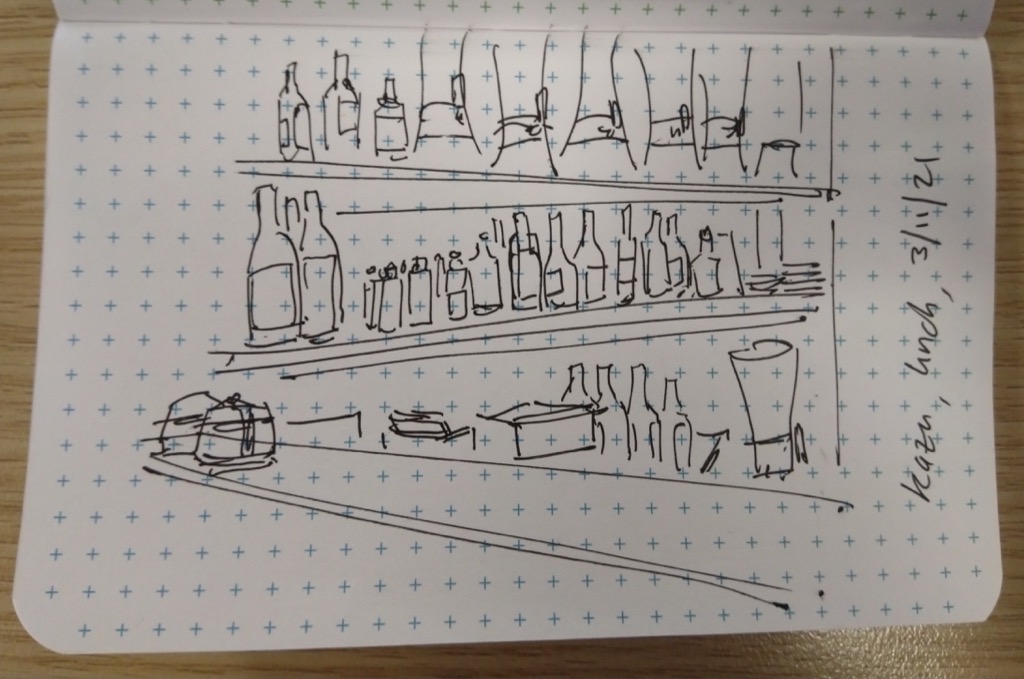 Kazu, lunch, 3/11/21